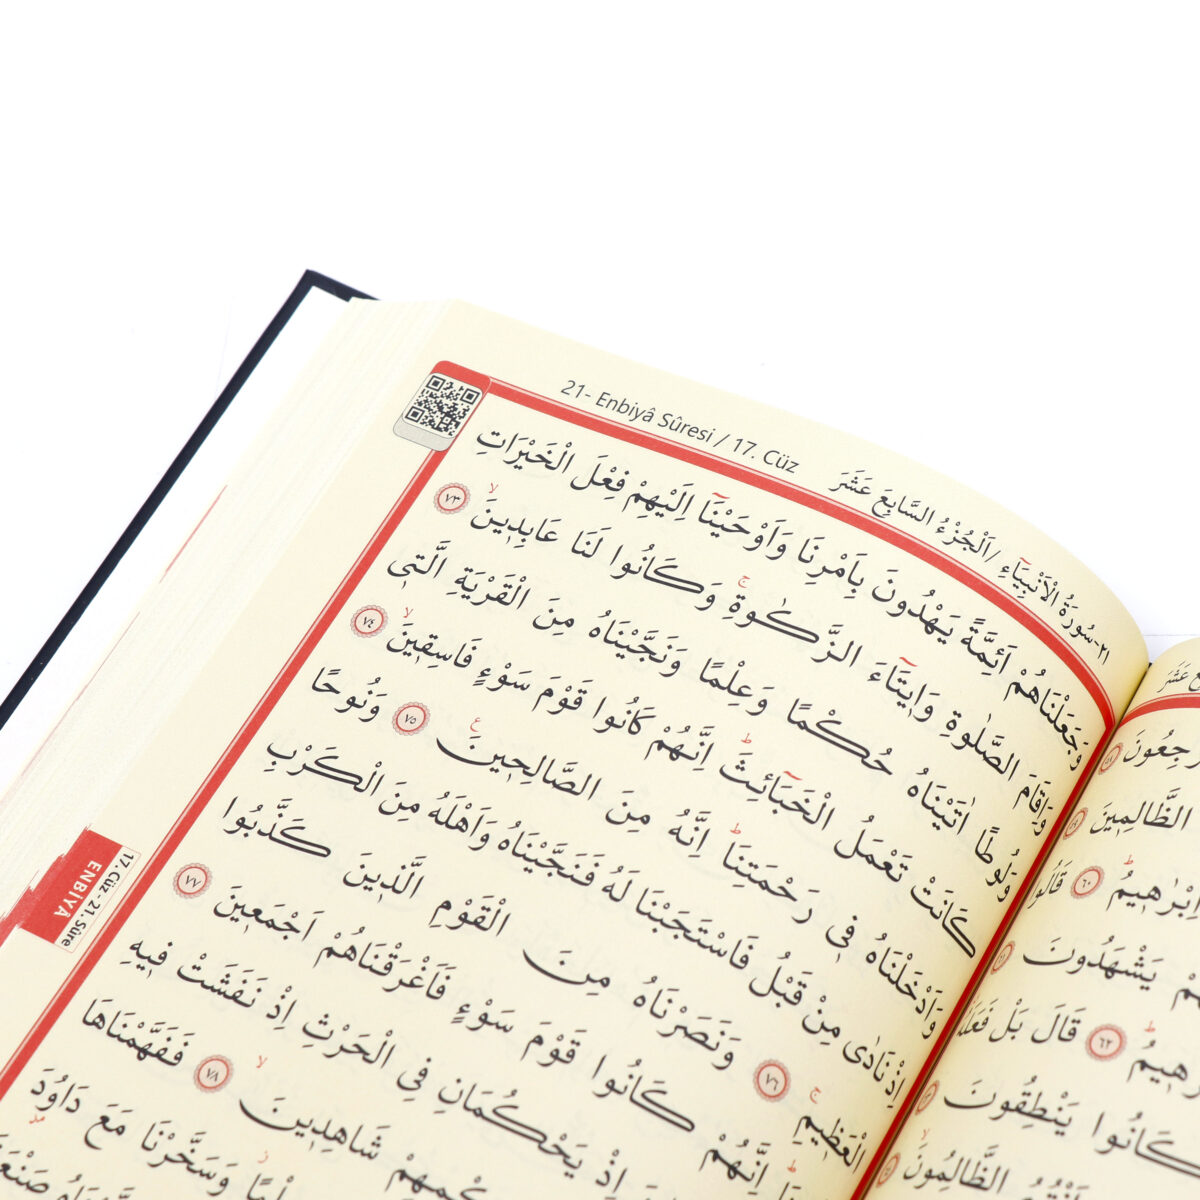 21- Enbiyâ Sûresi / 17. Cüz
٢١-سُورَةُ الْاَنْبِيَٓاءِ /اَلْجُزْءُ السَّابِعَ عَشَرَ
وَجَعَلْنَاهُمْ اَئِمَّةً يَهْدُونَ بِاَمْرِنَا وَاَوْحَيْنَٓا اِلَيْهِمْ فِعْلَ الْخَيْرَاتِ
وَاِقَامَ الصَّلٰوةِ وَا۪يتَٓاءَ الزَّكٰوةِۚ وَكَانُوا لَنَا عَابِد۪ينَۙ ٧٣
وَلُوطًا اٰتَيْنَاهُ حُكْمًا وَعِلْمًا وَنَجَّيْنَاهُ مِنَ الْقَرْيَةِ الَّت۪ي
كَانَتْ تَعْمَلُ الْخَبَٓائِثَۜ اِنَّهُمْ كَانُوا قَوْمَ سَوْءٍ فَاسِق۪ينَۙ ٧٤
وَاَدْخَلْنَاهُ ف۪ي رَحْمَتِنَاۜ اِنَّهُ مِنَ الصَّالِح۪ينَ۟ ٧٥ وَنُوحًا
اِذْ نَادٰى مِنْ قَبْلُ فَاسْتَجَبْنَا لَهُ فَنَجَّيْنَاهُ وَاَهْلَهُ مِنَ الْكَرْبِ
الْعَظ۪يمِۚ ٧٦ وَنَصَرْنَاهُ مِنَ الْقَوْمِ الَّذ۪ينَ كَذَّبُوا
اِنَّهُمْ كَانُوا قَوْمَ سَوْءٍ فَاَغْرَقْنَاهُمْ اَجْمَع۪ينَ ٧٧
اِذْ يَحْكُمَانِ فِي الْحَرْثِ اِذْ نَفَشَتْ ف۪يهِ
شَاهِد۪ينَۙ ٧٨ فَفَهَّمْنَاهَا
وَسَخَّرْنَا مَعَ دَاوُ۫دَ
17. Cüz - 21. Sûre
ENBİYÂ
الظَّالِم۪ينَ
اِبْرٰه۪يمُۜ ٦٠ قَالُوا
يَشْهَدُونَ
٦٢ قَالَ بَلْ فَعَلَهُ
كَانُوا يَنْطِقُونَ
الظَّالِمُونَۙ